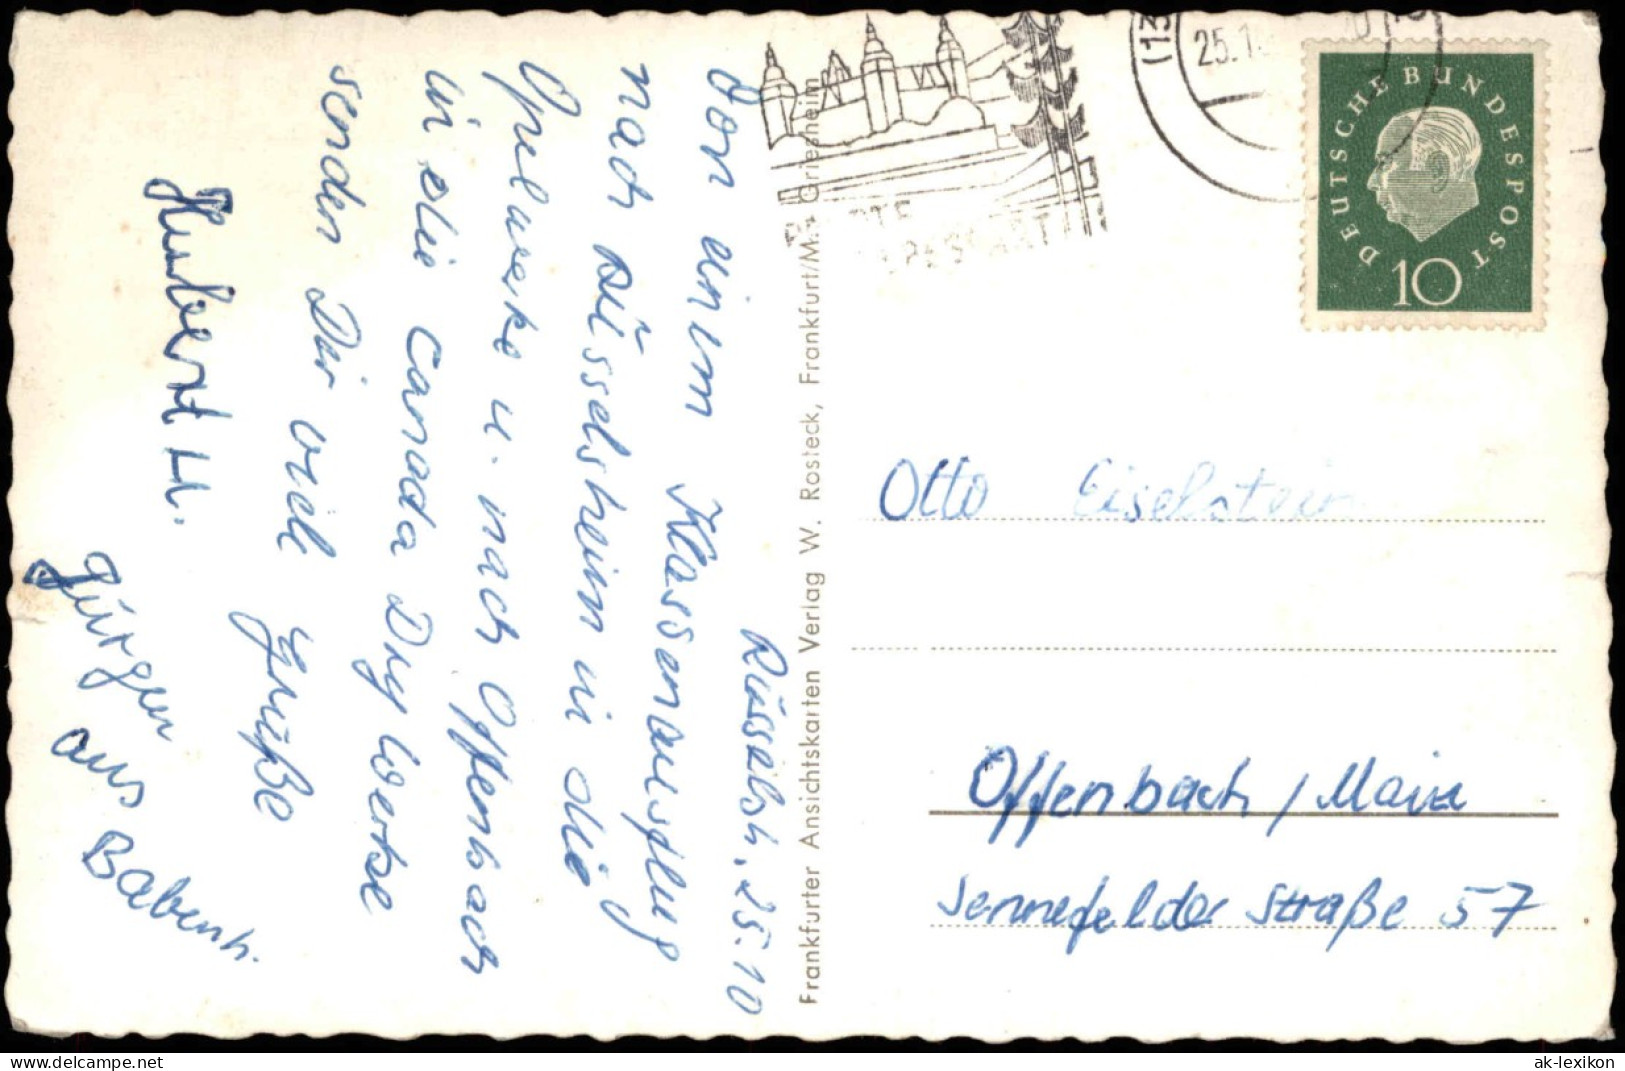 Rüsselsh, 25.10
Von einem Klassenausflug
nach Rüsselsheim in die
Opelwerke u. nach Offenbach
in die Canada Dry Werke
senden Dir viel Grüße
Hubert H.
Jürgen
aus
Babenh.
Frankfurter Ansichtskarten Verlag W. Rosteck, Frankfurt/M. Griesheim
SPESSART
(13
25.1
DEUTSCHE BUNDESPOST
10
Otto Eiselstein
Offenbach / Main
Sennefelder Straße 57
oldthing.de
ak-lexikon